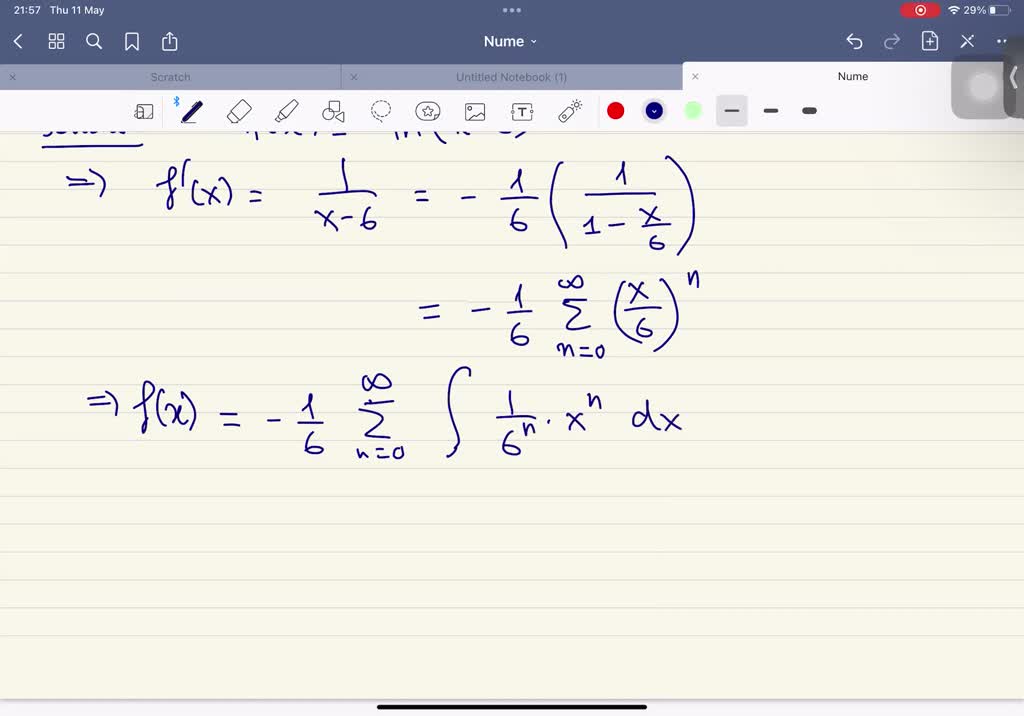 21:57 Thu 11 May 29%
Nume
Scratch Untitled Notebook (1) Nume
=> f'(x) = 1/(x-6) = - 1/6 (1/(1 - x/6))
= - 1/6 ∑_{n=0}^{∞} (x/6)^n
=> f(x) = - 1/6 ∑_{n=0}^{∞} ∫ 1/6^n · x^n dx